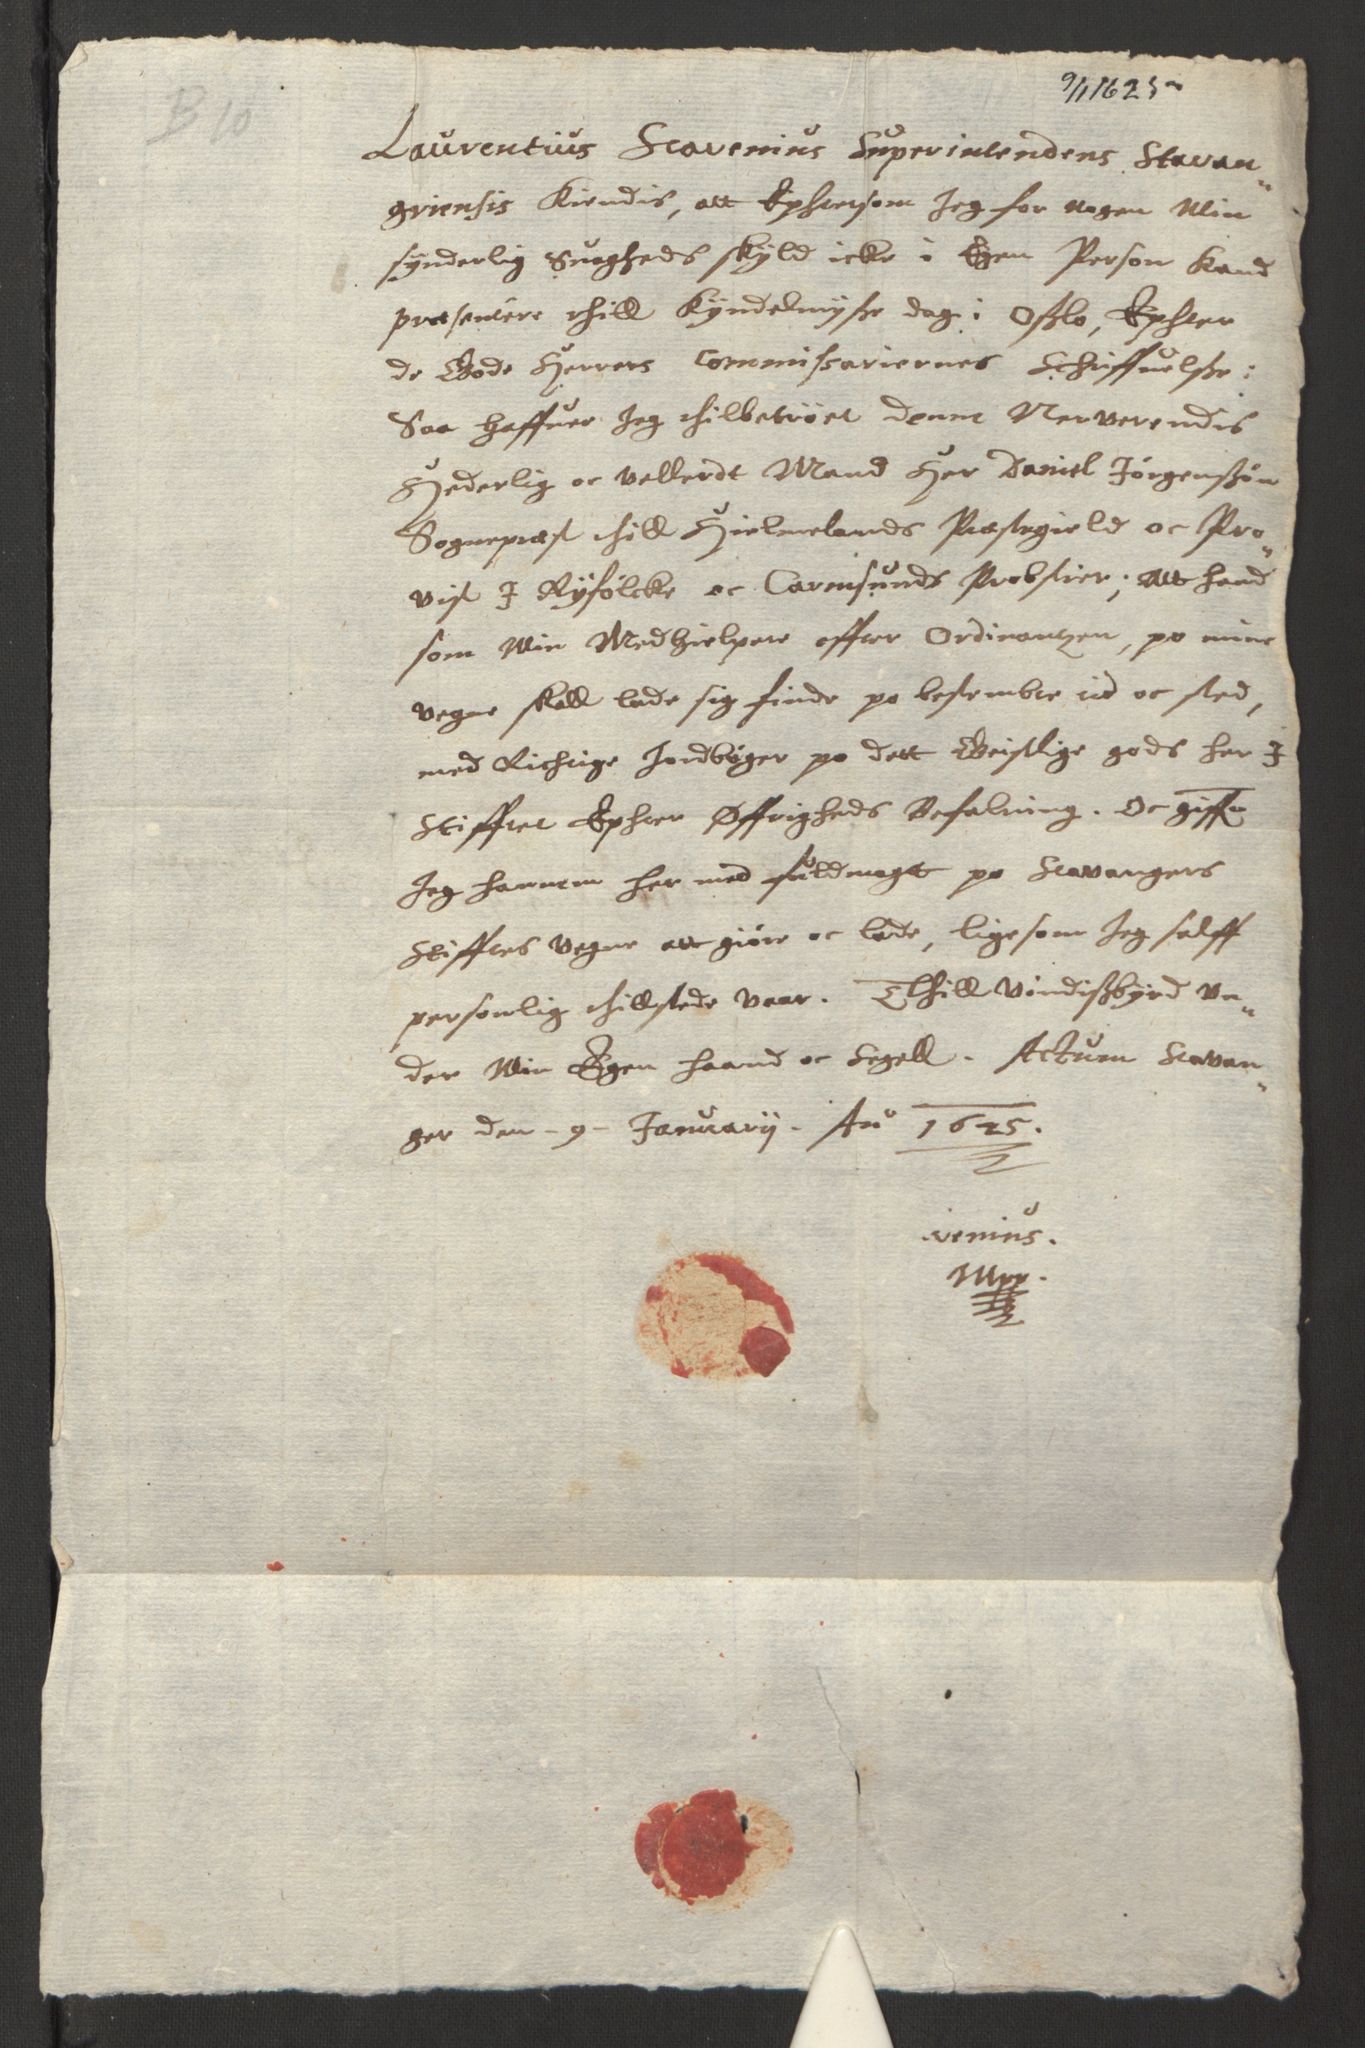 9/1 1625
B 10
Laurentius Scavenius Superintendens Stavan-
griensis Kiendis, att Ephtersom Jeg for nogen Min
synderlig Suagheds skyld icke i Egen Person kand
præsentere thill Kyndelmysse dag i Osslo, Ephter
de Gode Herrers Commissariernes Schriffuelsse:
Saa haffuer Jeg thilbetröet denne Nerverendis
Hederlig oc vellerdt Mand Her Daniel Jörgenssön
Sognepræst thill Hielmelands Præstegield oc Pro-
vist I Ryfölcke oc Carmsunds Probstier; Att hand
som Min Medhielpere effter Ordinantzen, po mine
vegne skall lade sig finde po bestembte tid oc sted,
med Richtige Jordböger po dett Geistlige gods her I
Stifftet Ephter Øffrigheds Befalning. Oc giffr
Jeg hannem her med fuldmagt po Stavangers
Stifftes vegne att giöre oc lade, ligesom Jeg selff
personlig thillstede vaar. Thill Vindissbyrd un-
der Min Egen haand oc Segell. Actum Stavan-
ger den -9- Januarij. Ao 1625.
venius.
Mpp.